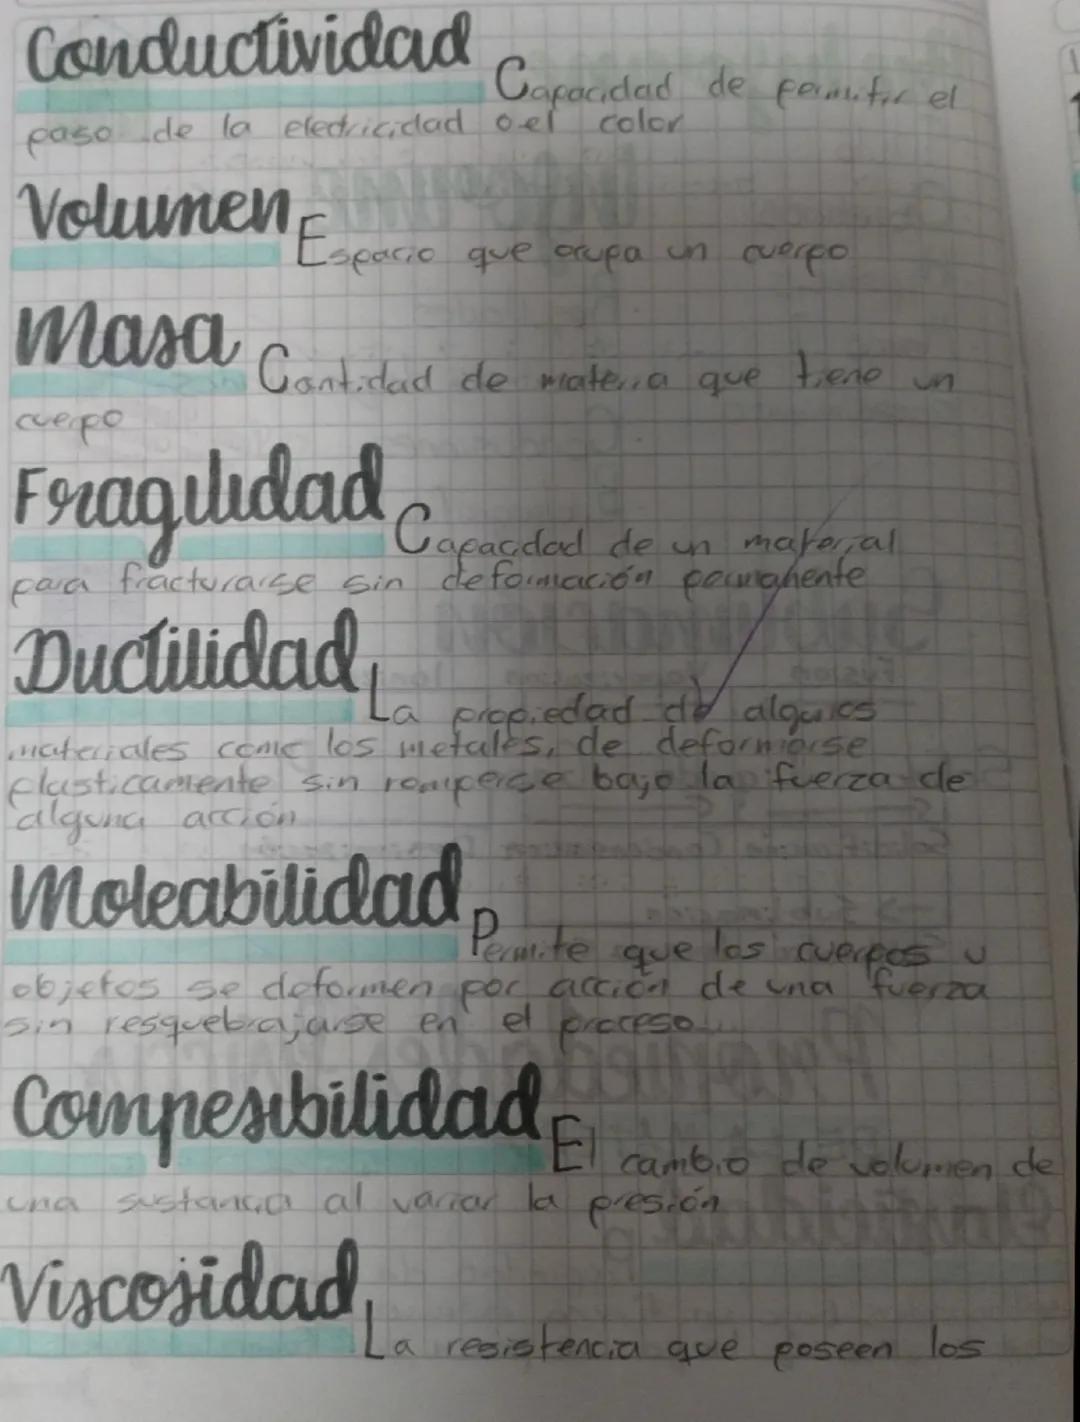 Conductividad Capacidad de permitir el
paso de la electricidad o el color
Volumen Espacio que ocupa un cuerpo
Masa Cantidad de materia que tiene un
cuerpo
Fragilidad Capacidad de un material
para fracturarse sin deformación permanente
Ductilidad La propiedad de algunos
materiales como los metales, de deformarse
plasticamente sin romperse bajo la fuerza de
alguna acción
Moleabilidad Permite que los cuerpos u
objetos se deformen por acción de una fuerza
sin resquebrajarse en el proceso
Compresibilidad El cambio de volumen de
una sustancia al variar la presión
Viscosidad La resistencia que poseen los